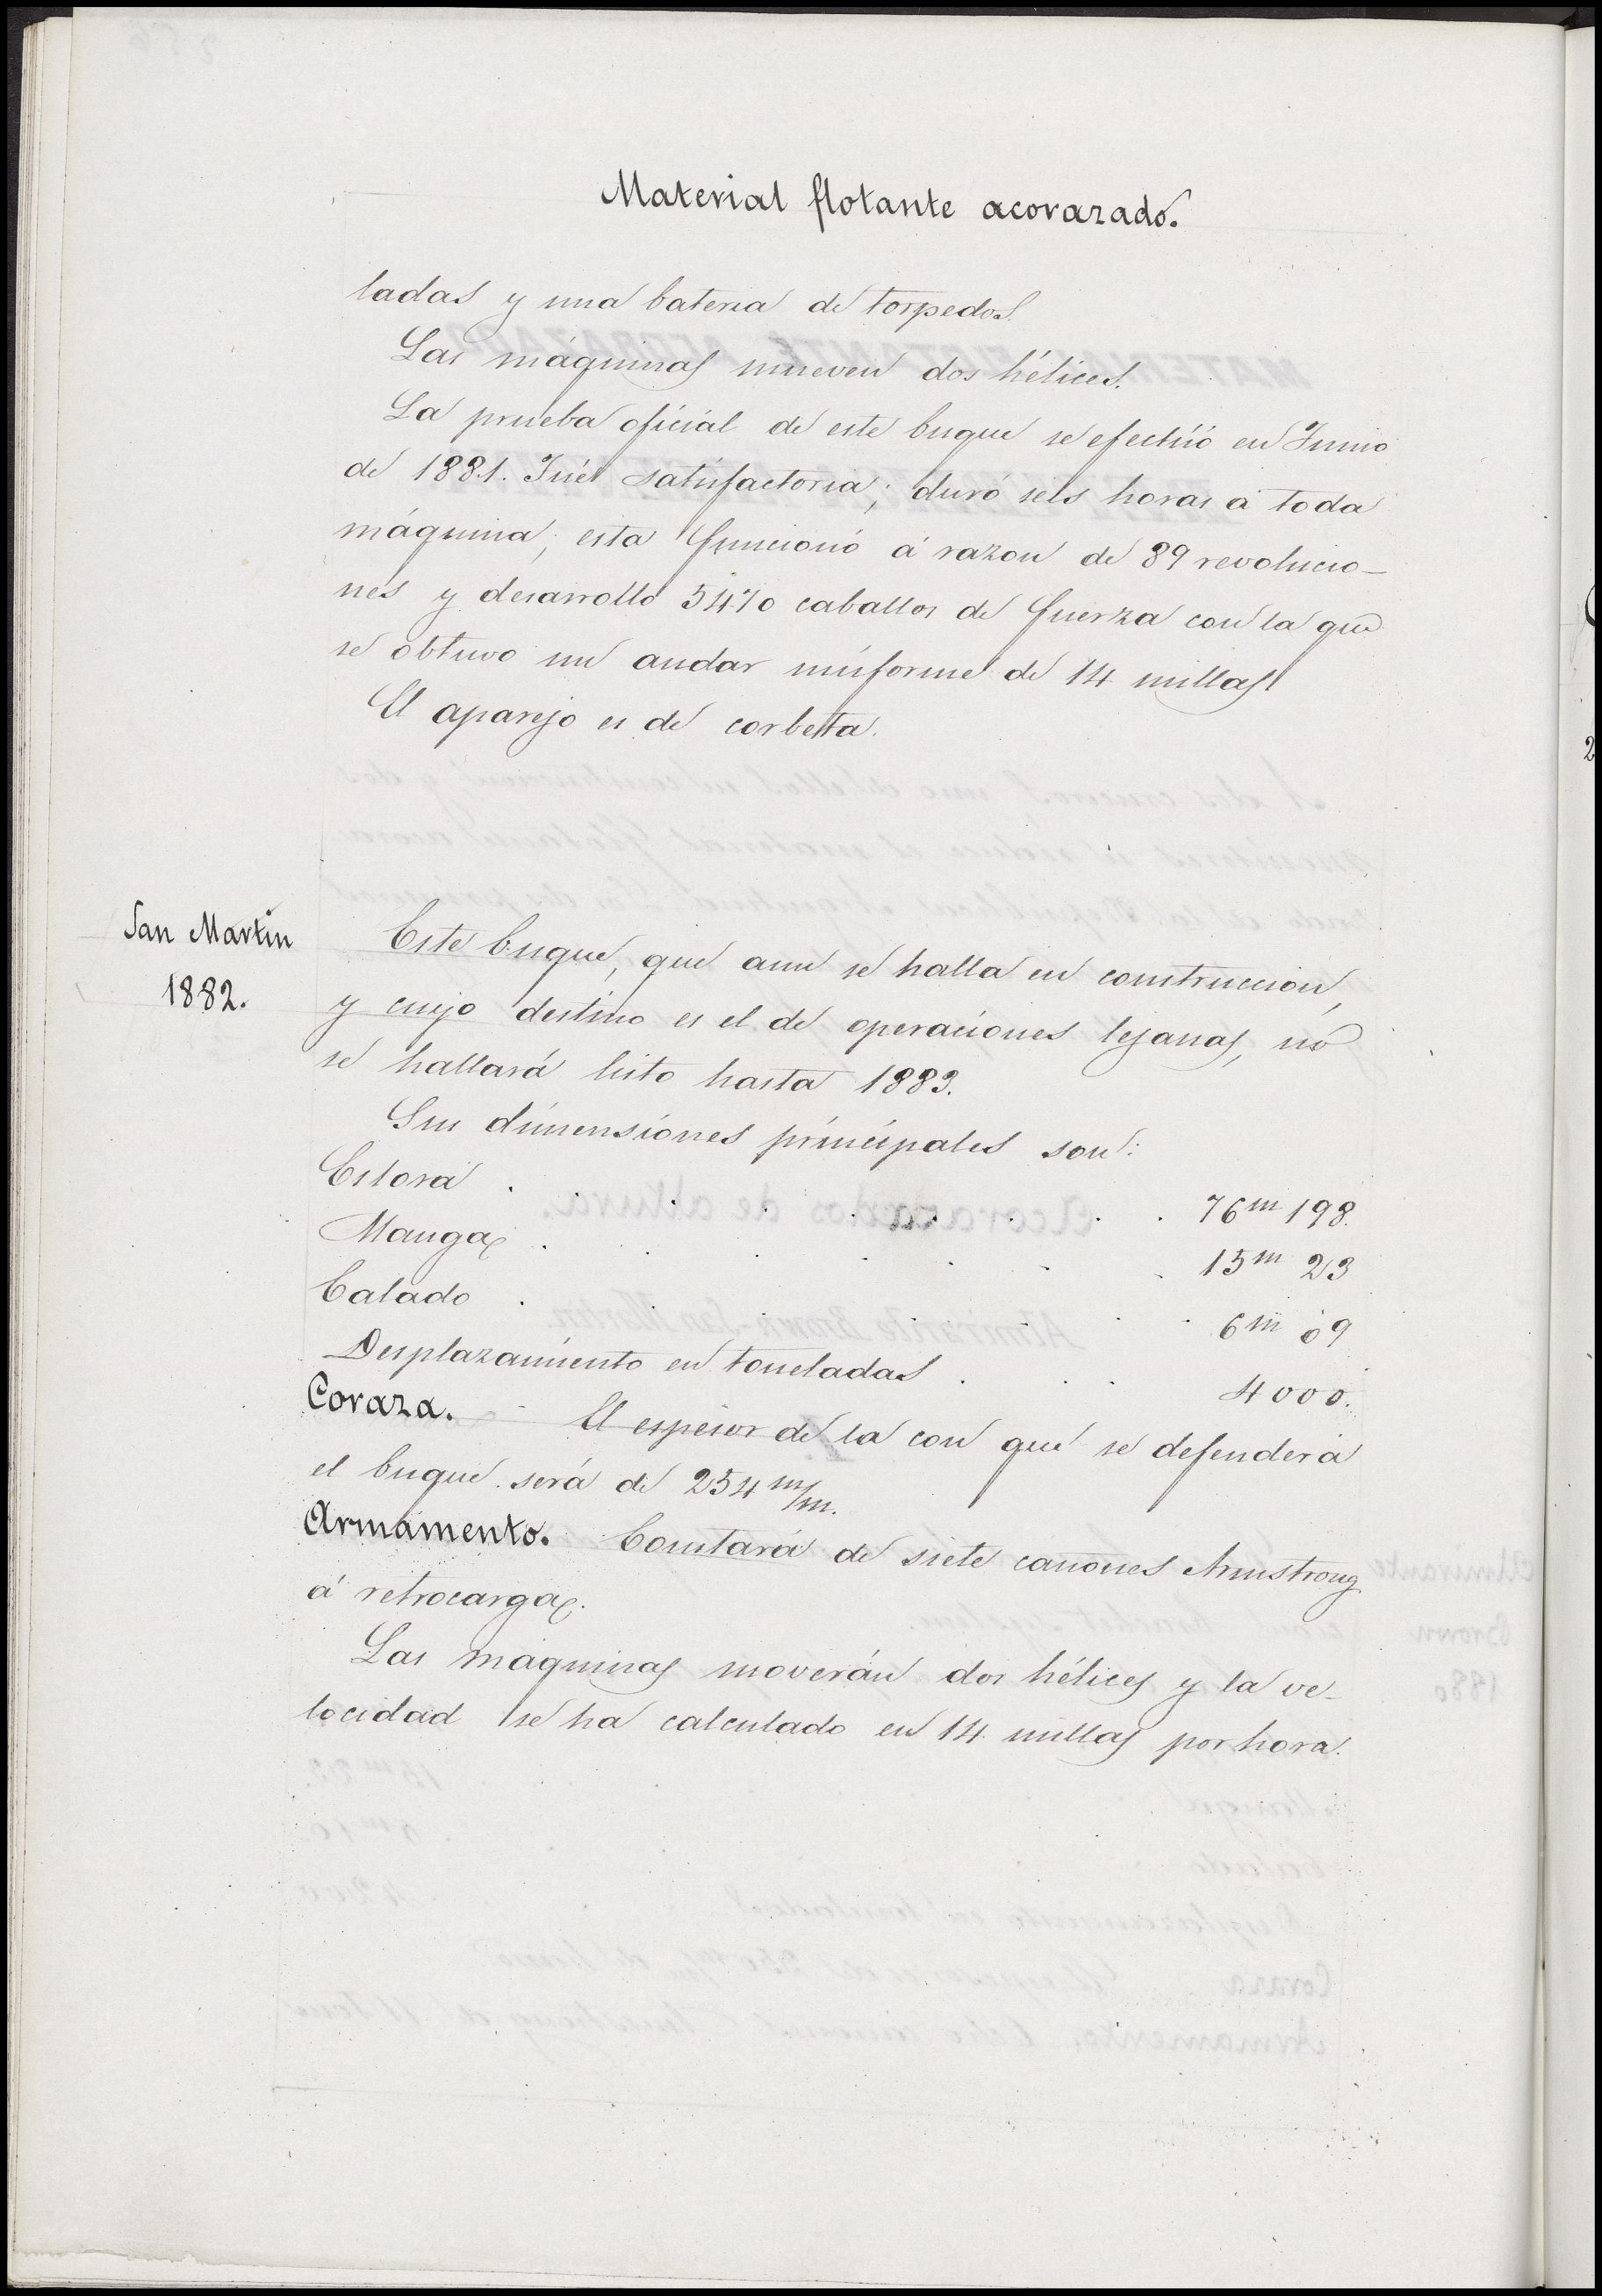 Material flotante acorazado.
ladas y una bateria de torpedos.
Las máquinas mueven dos hélices.
La prueba oficial de este buque se efectúó en Junio
de 1881. Fué satisfactoria; duró seis horas á toda
máquina; esta funcionó á razon de 89 revolucio-
nes y desarrolló 5470 caballos de fuerza con la que
se obtuvo un andar uniforme de 14 millas
El aparejo es de corbeta.
San Martin
1882.
Este buque, que aun se halla en construccion,
y cuyo destino es el de operaciones lejanas, no
se hallará listo hasta 1883.
Sus dimensiones principales son:
Eslora . . . . . . . . 76m 198.
Manga . . . . . . . 15m 23
Calado . . . . . . 6m 09
Desplazamiento en toneladas . . . 4000.
Coraza. El espesor de la con que se defenderá
el buque será de 254 m/m.
Armamento. Constará de siete cañones Armstrong
á retrocarga.
Las máquinas moverán dos hélices y la ve-
locidad se ha calculado en 14 millas por hora.